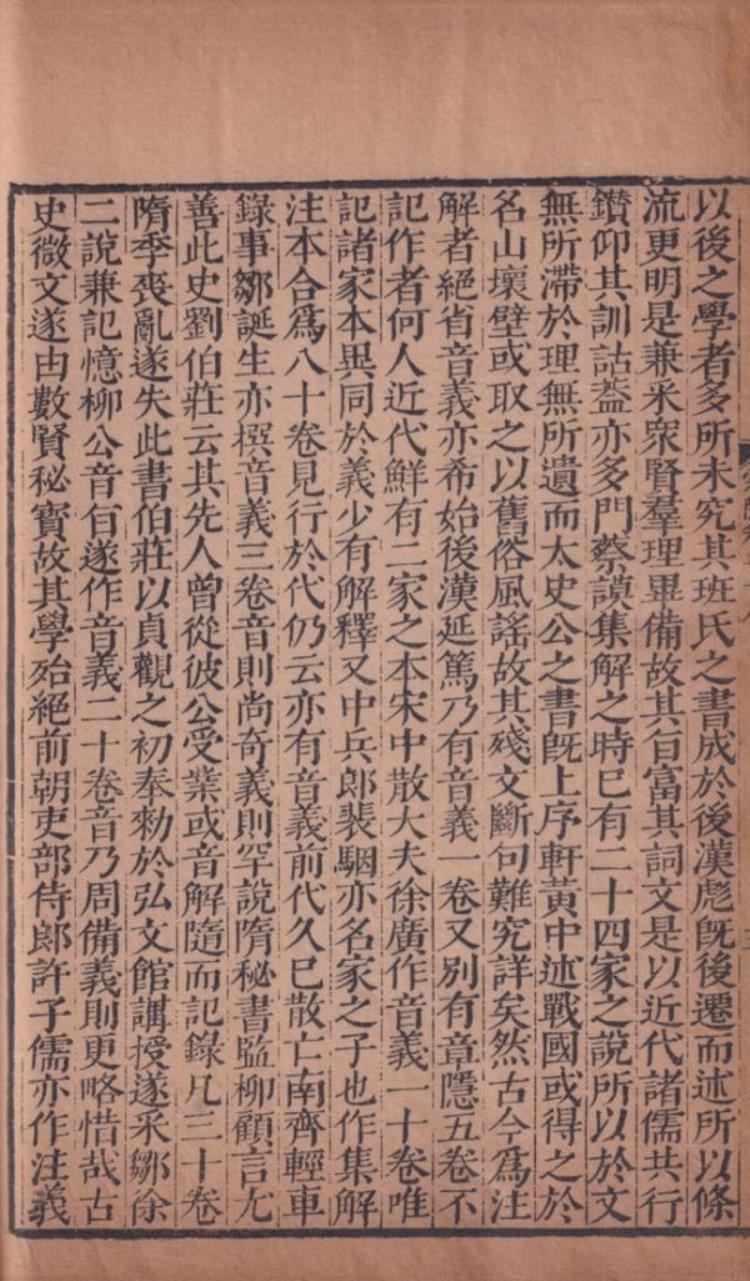 以後之學者多所未究其班氏之書成於後漢彪旣後遷而述所以條
流更明是兼釆衆賢羣理畢備故其旨富其詞文是以近代諸儒共行
鑽仰其訓詁蓋亦多門蔡謨集解之時已有二十四家之說所以於文
無所滯於理無所遺而太史公之書旣上序軒黃中述戰國或得之於
名山壞壁或取之以舊俗風謠故其殘文斷句難究詳矣然古今爲注
解者絕省音義亦希始後漢延篤乃有音義一卷又別有章隱五卷不
記作者何人近代鮮有二家之本宋中散大夫徐廣作音義一十卷唯
記諸家本異同於義少有解釋又中兵郎裴駰亦名家之子也作集解
注本合爲八十卷見行於代仍云亦有音義前代久已散亡南齊輕車
錄事鄒誕生亦撰音義三卷音則尚奇義則罕說隋秘書監柳顧言尤
善此史劉伯莊云其先人曾從彼公受業或音解隨而記錄凡三十卷
隋季喪亂遂失此書伯莊以貞觀之初奉勑於弘文館講授遂釆鄒徐
二說兼記憶柳公音旨遂作音義二十卷音乃周備義則更略惜哉古
史微文遂由數賢秘寶故其學殆絕前朝吏部侍郎許子儒亦作注義